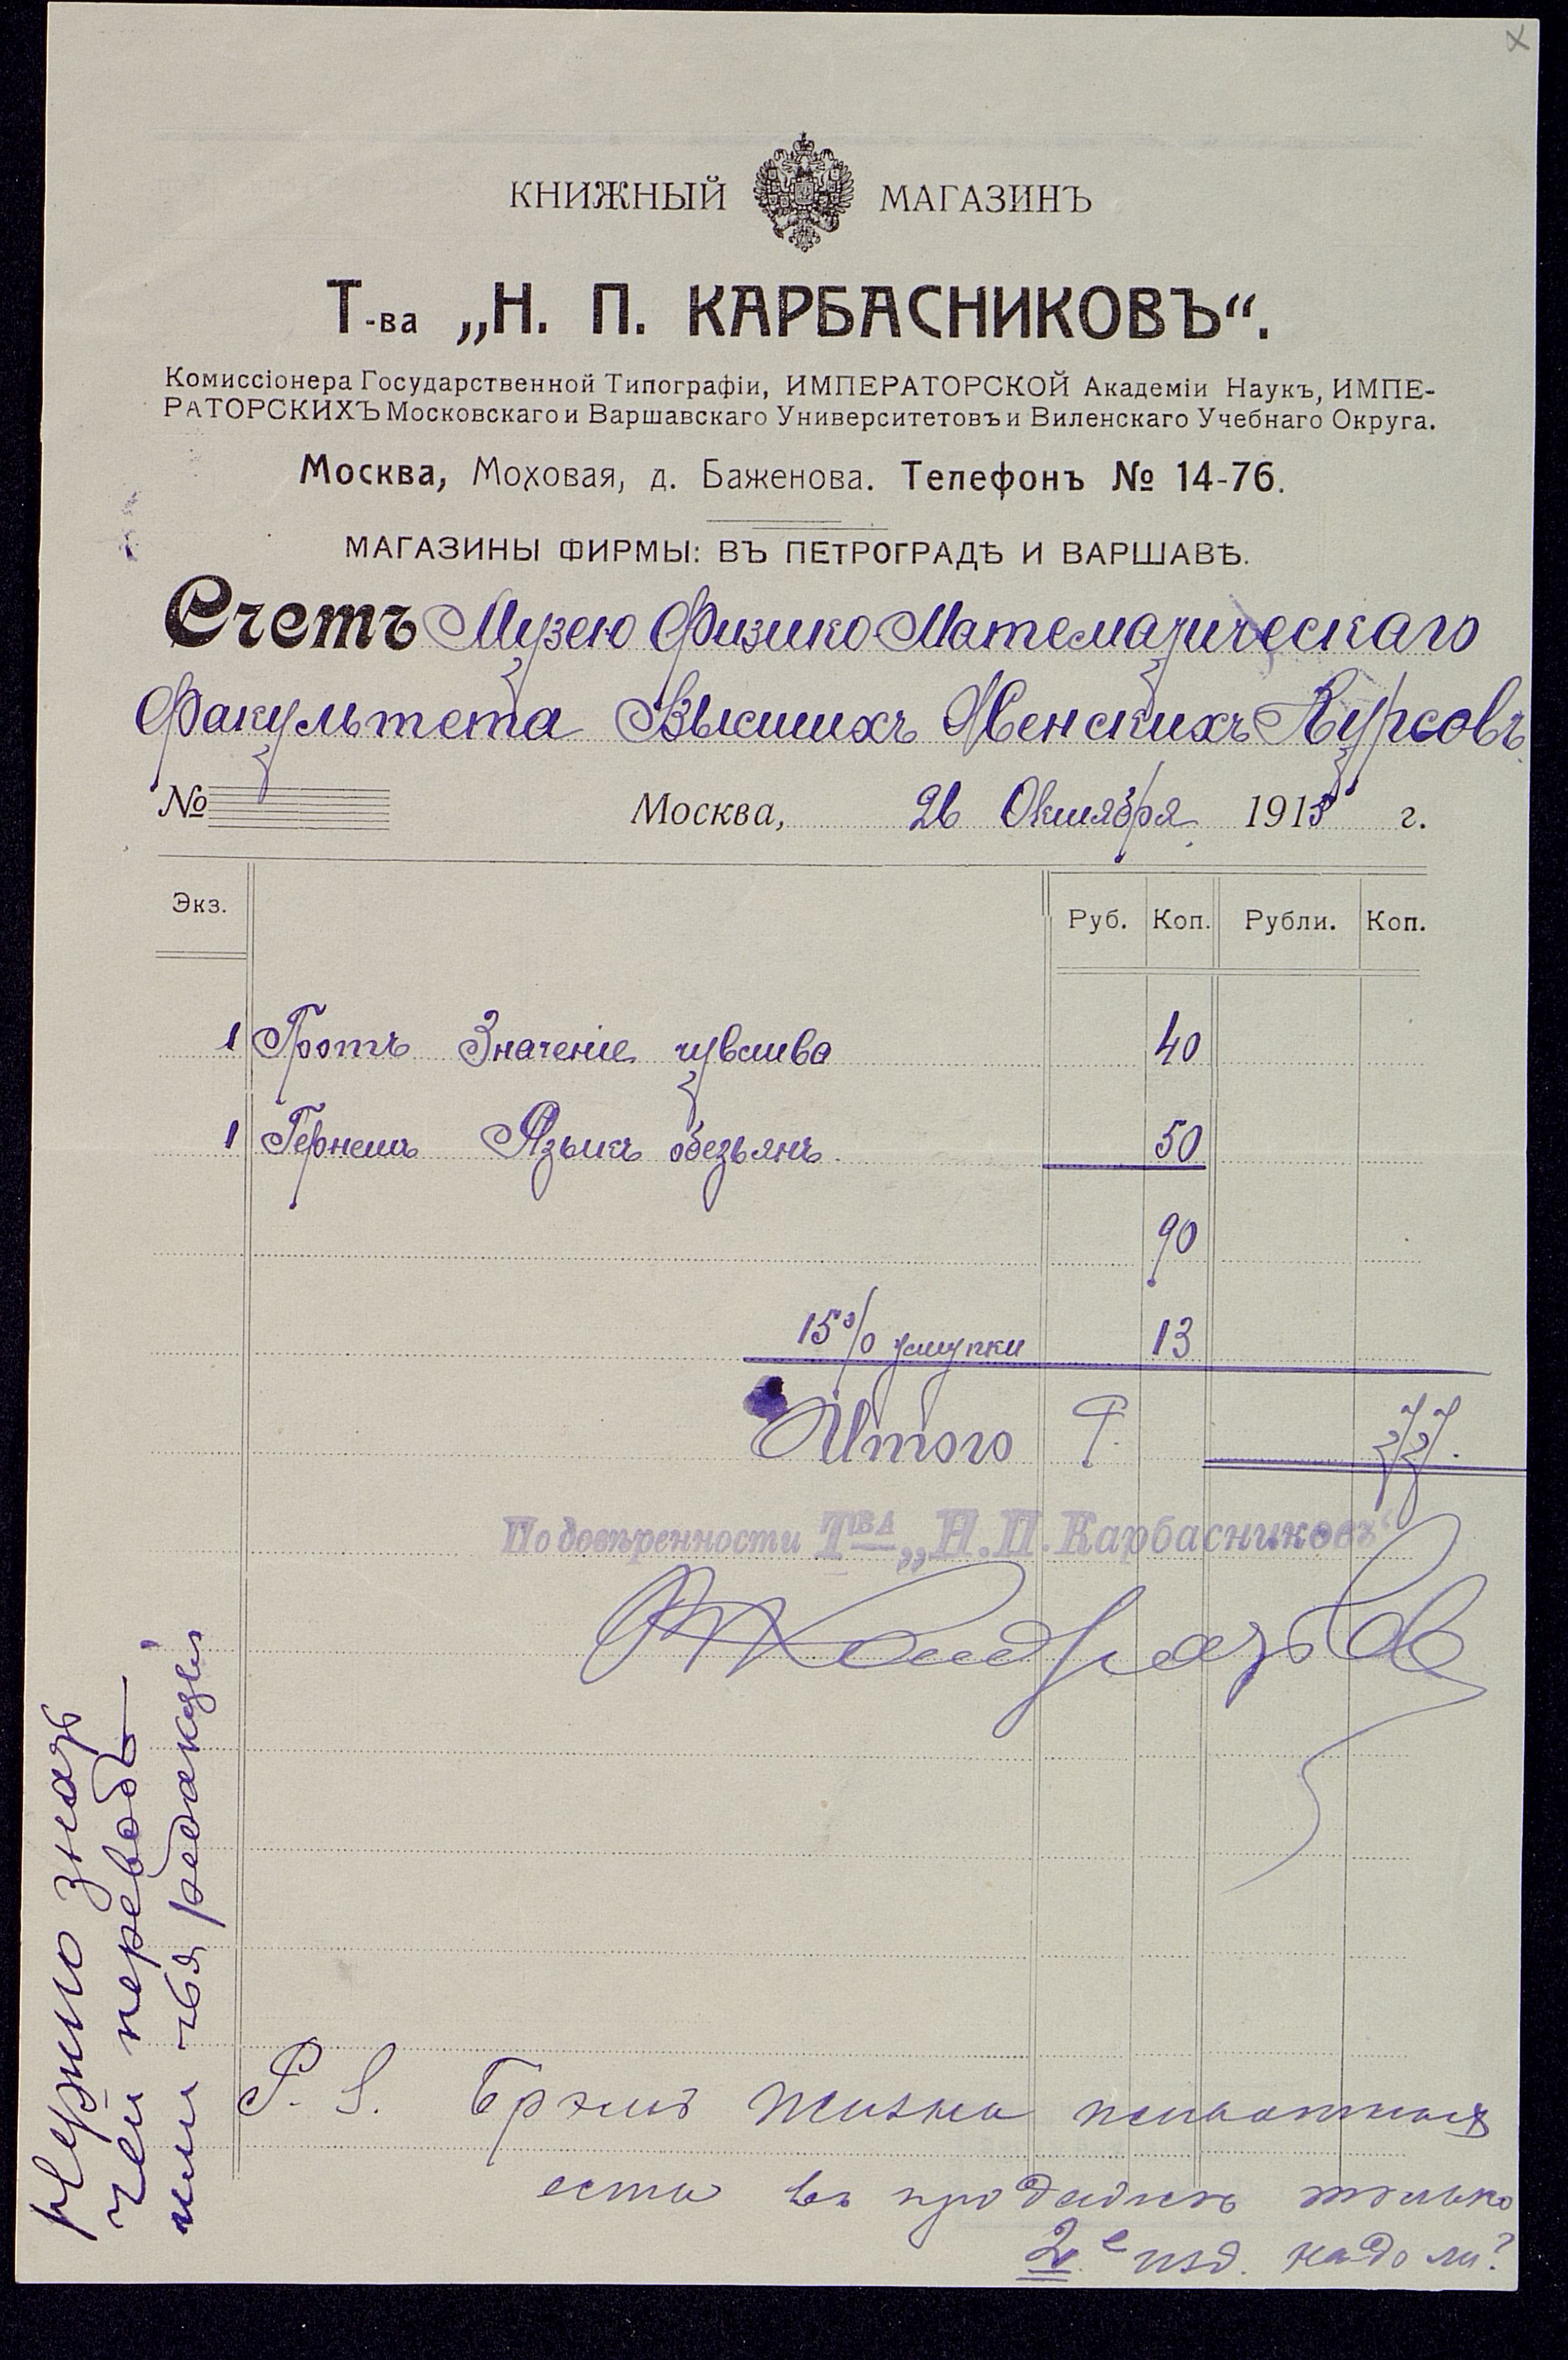 КНИЖНЫЙ МАГАЗИНЪ
Т-ва „Н. П. КАРБАСНИКОВЪ“.
Комиссіонера Государственной Типографіи, ИМПЕРАТОРСКОЙ Академіи Наукъ, ИМПЕ-
РАТОРСКИХЪ Московскаго и Варшавскаго Университетовъ и Виленскаго Учебнаго Округа.
Москва, Моховая, д. Баженова. Телефонъ № 14-76.
МАГАЗИНЫ ФИРМЫ: ВЪ ПЕТРОГРАДѢ И ВАРШАВѢ.
Счетъ Музею Физико Математическаго
Факультета Высшихъ Женскихъ Курсовъ
№ Москва, 26 Октября 1915 г.
Экз. Руб. Коп. Рубли. Коп.
1 Гротъ Значеніе чувства 40
1 Гернетъ Языкъ обезьянъ. 50
90
15% уступки 13
Итого Р. 77.
По довѣренности Т-ВА „Н. П. Карбасниковъ“
Нужно знать
чей переводъ
или чья редакція
P. S. Брэмъ Жизнь животныхъ
есть въ продажѣ только
2е изд. надо ли?